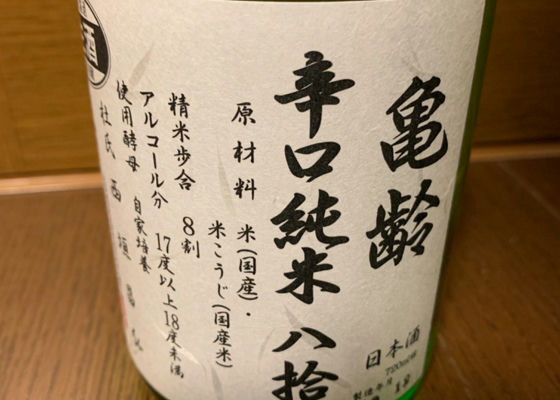 亀齢
辛口純米 八拾
原材料 米(国産)・
米こうじ(国産米)
精米歩合 8割
アルコール分 17度以上18度未満
使用酵母 自家培養
杜氏 西垣
酒
日本酒
720ml詰
製造年月